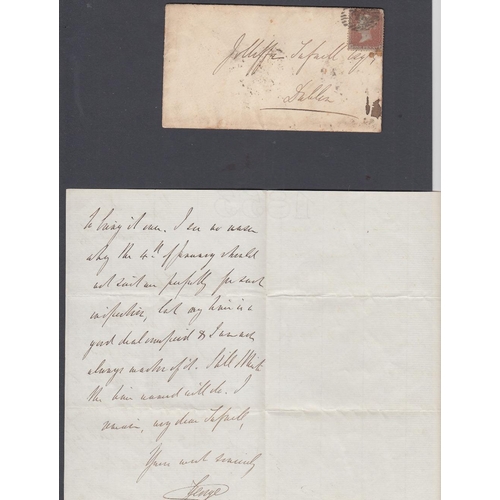 Jolliffe Tufnell Esq
Dublin
to bring it over. I see no reason
why the 4th of January should
not suit me perfectly for such
inspection, but my time is a
good deal occupied & I am not
always master of it. Still I think
the time named will do. I
remain, my dear Tufnell,
Yours most sincerely
George